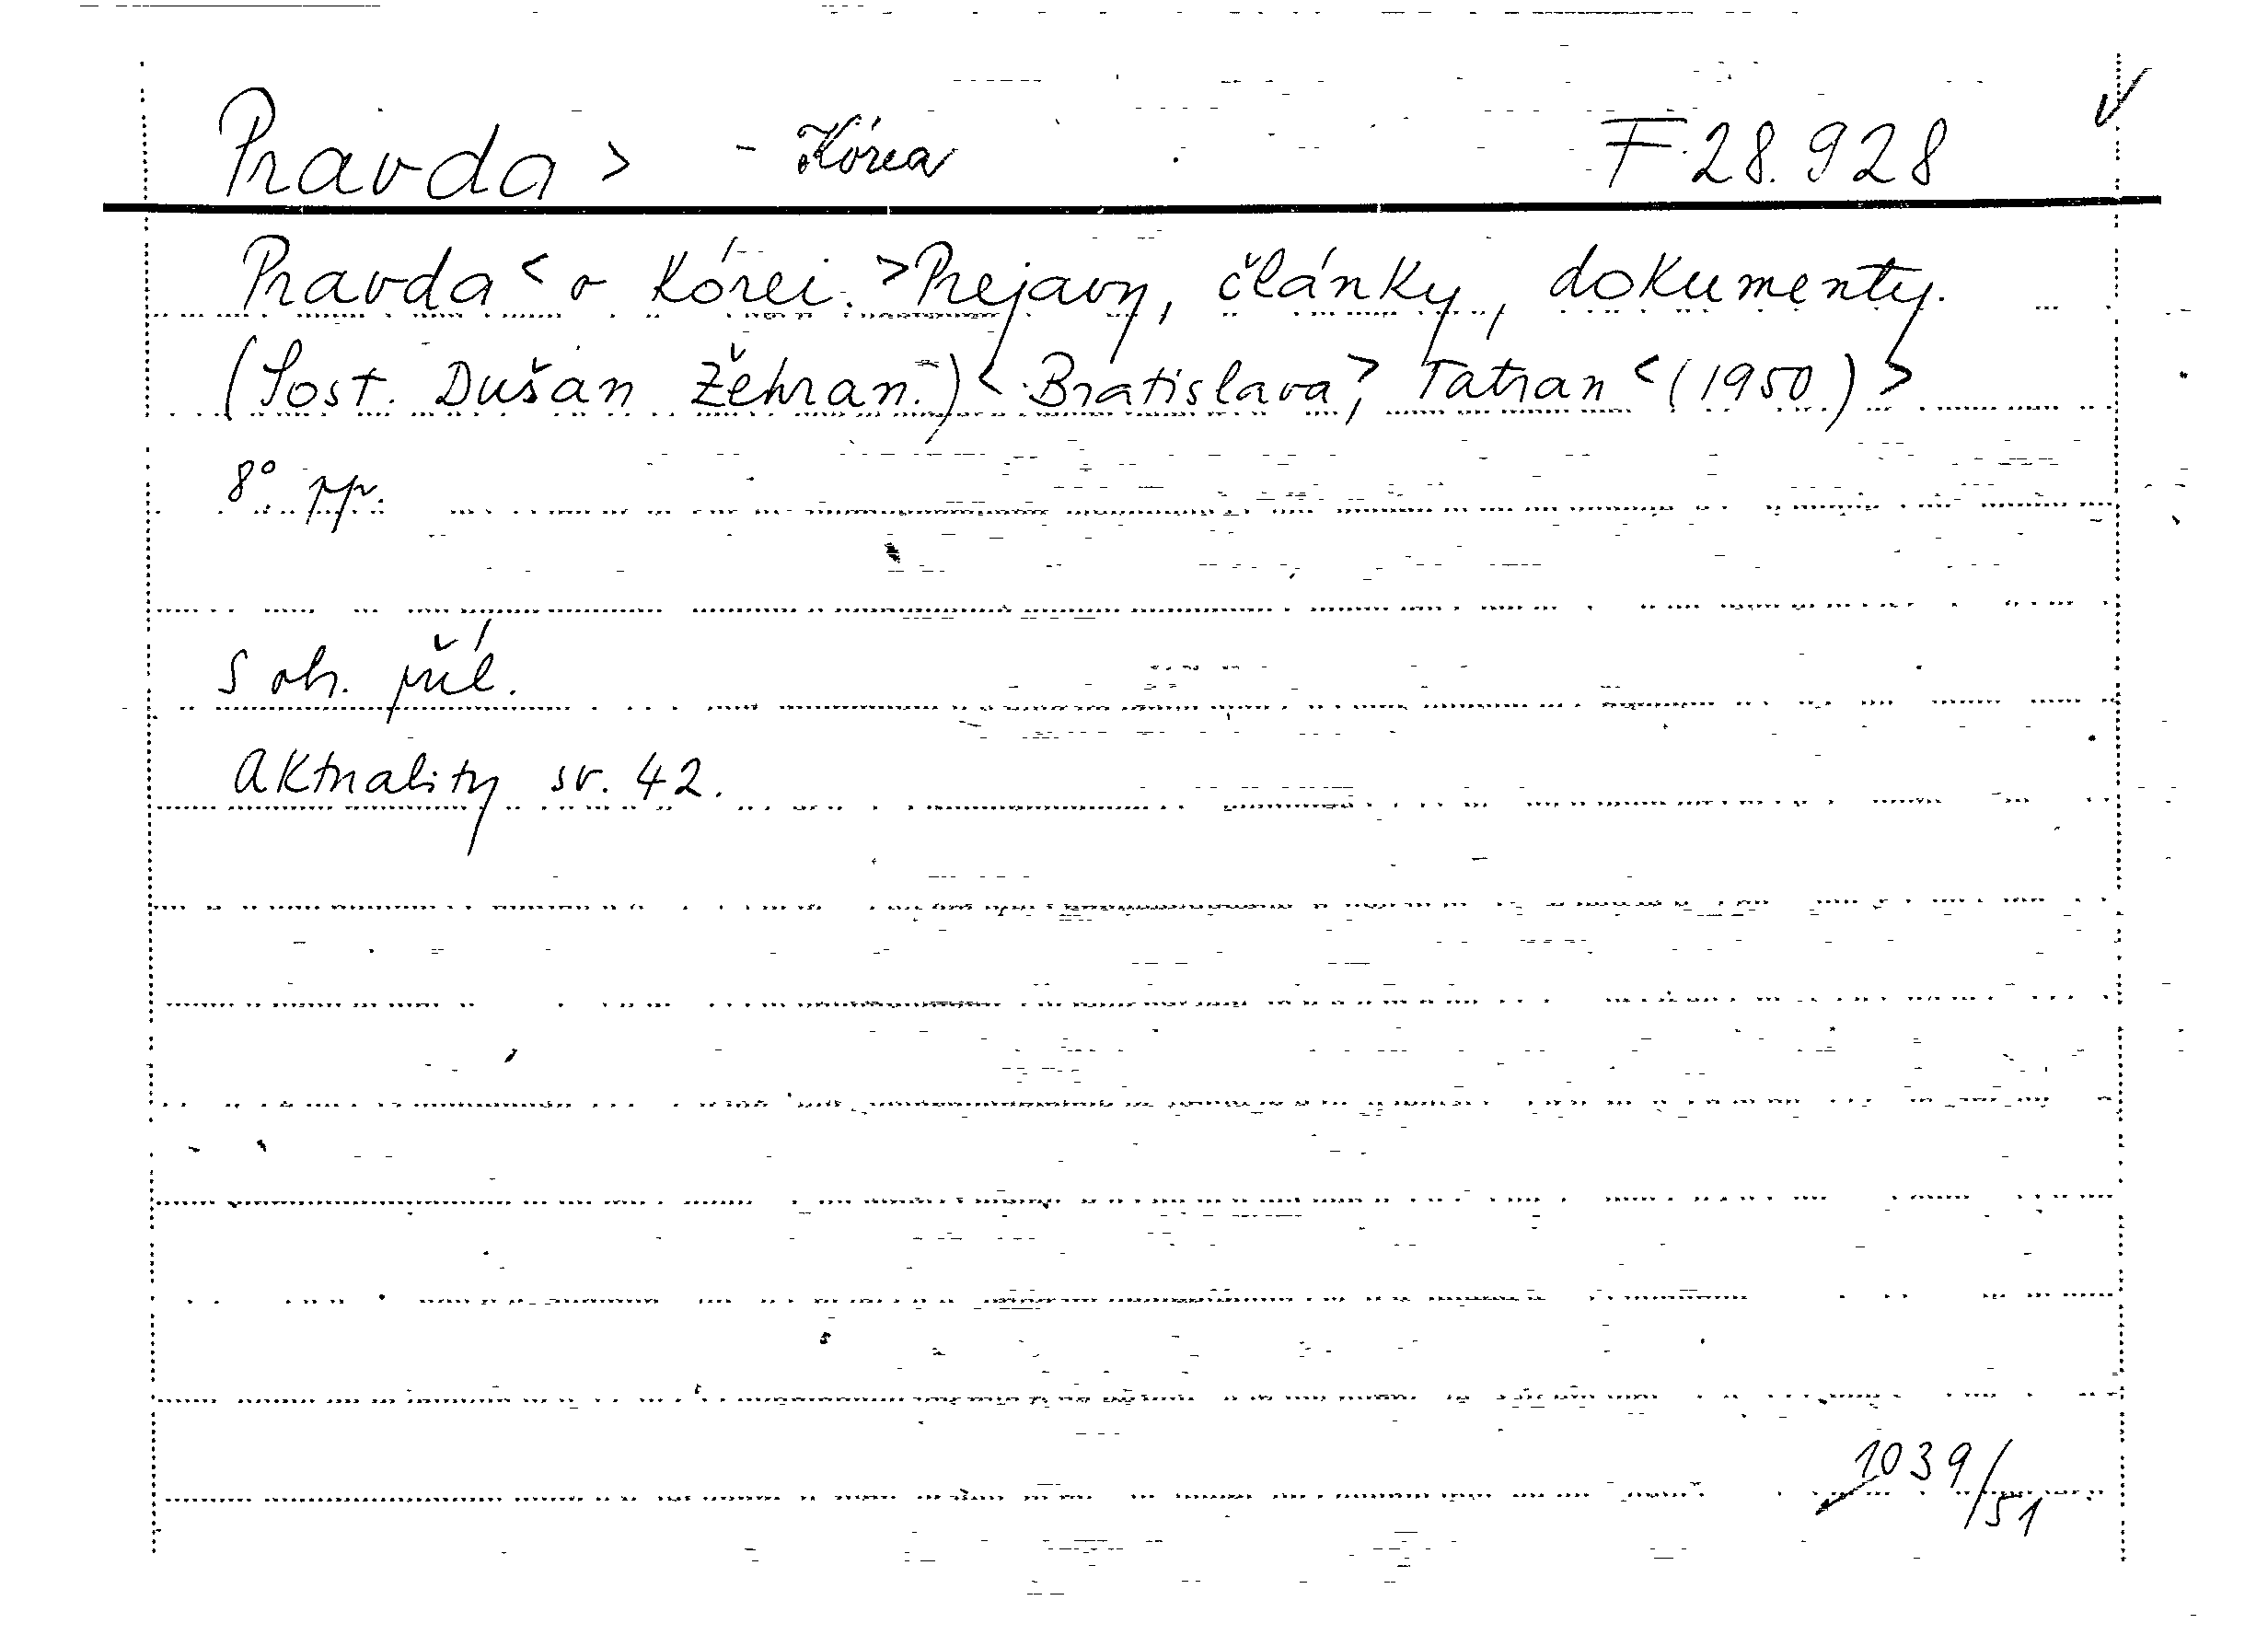 Pravda > - Kórea F 28.928 ✓
Pravda < o Kórei. > Prejavy, články, dokumenty.
(Sost. Dušan Žehran.) < Bratislava >, Tatran < (1950) >
8° pp.
S obr. příl.
Aktuality sv. 42.
1039/51